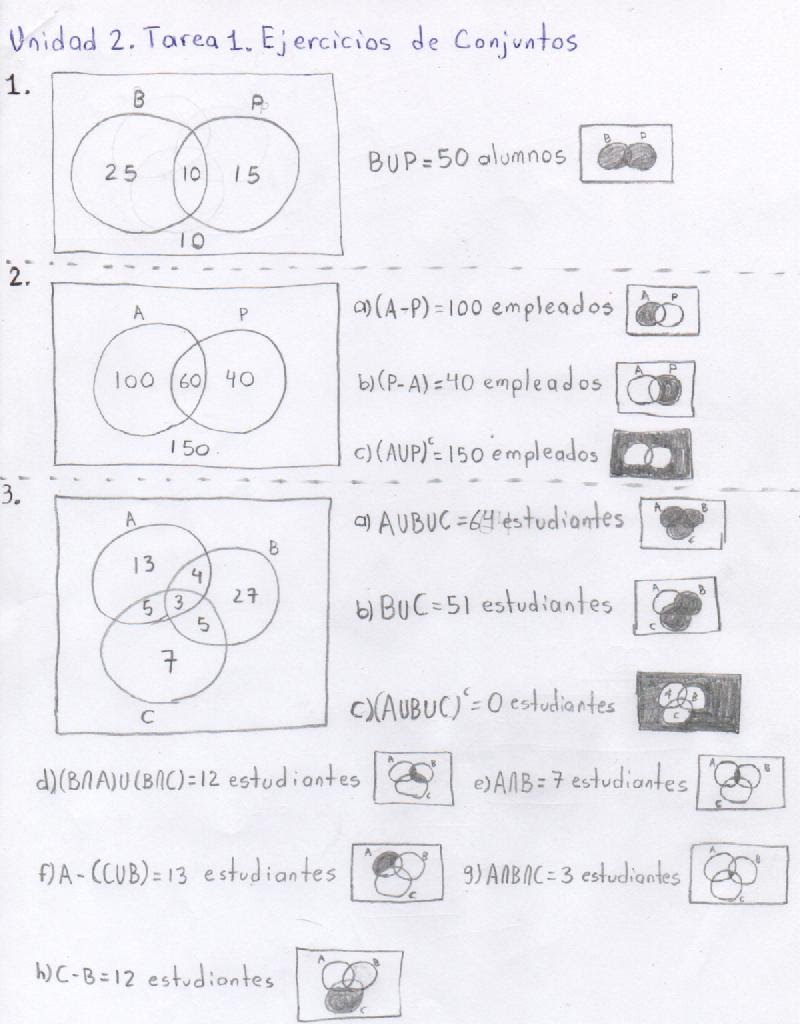 Unidad 2. Tarea 1. Ejercicios de Conjuntos
1.
B P
25 10 15
10
B∪P = 50 alumnos
B P
2.
A P
100 60 40
150
a) (A-P) = 100 empleados
A P
b) (P-A) = 40 empleados
A P
c) (A∪P)ᶜ = 150 empleados
3.
A
B
13 4
5 3 27
5
7
C
a) A∪B∪C = 64 estudiantes
A B
C
b) B∪C = 51 estudiantes
A B
C
c) (A∪B∪C)ᶜ = 0 estudiantes
A B
C
d) (B∩A)∪(B∩C) = 12 estudiantes
A B
C
e) A∩B = 7 estudiantes
A B
C
f) A - (C∪B) = 13 estudiantes
A B
C
g) A∩B∩C = 3 estudiantes
A B
C
h) C-B = 12 estudiantes
A B
C